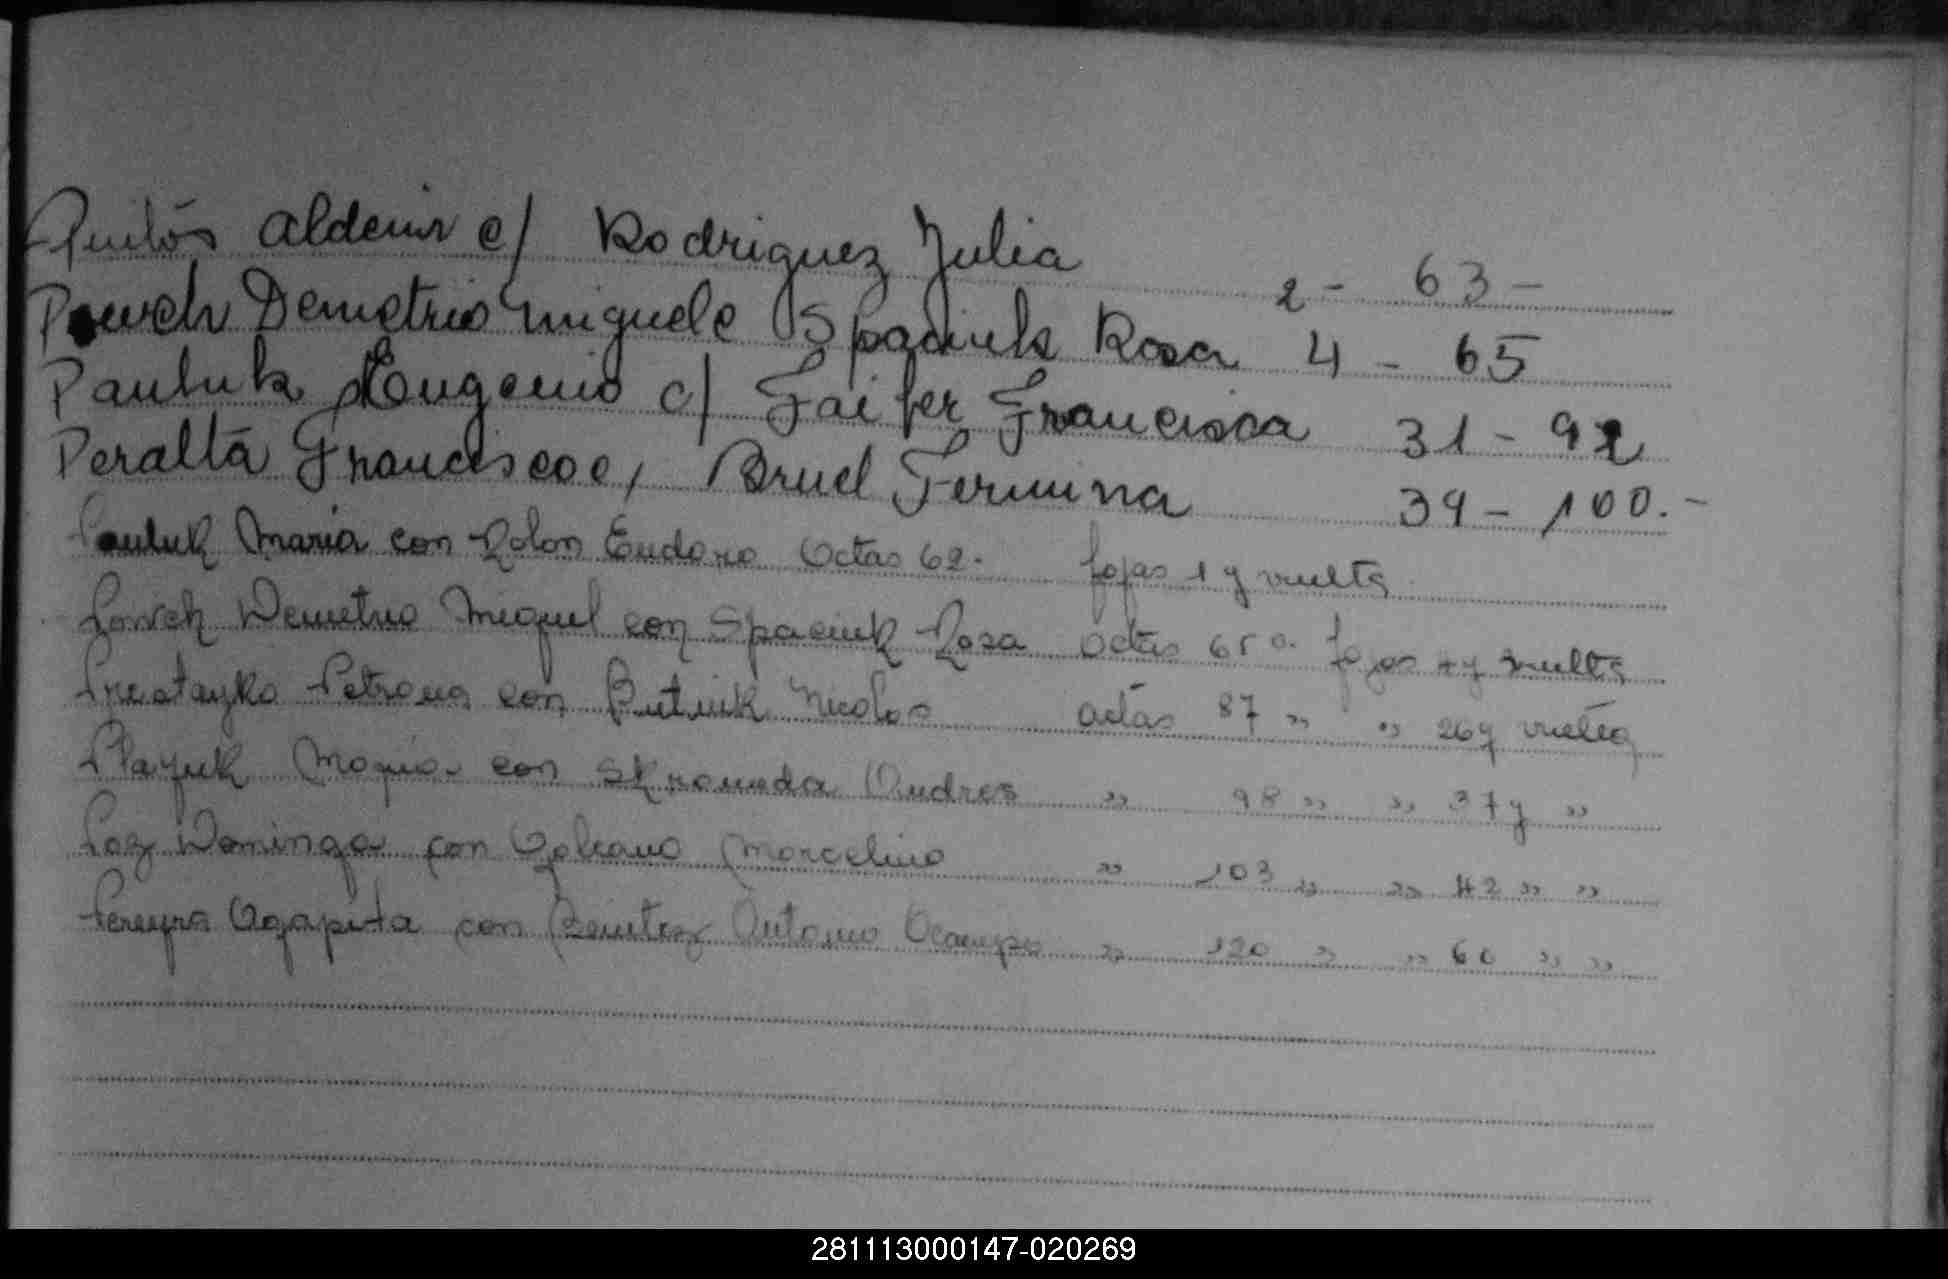 Quitós Aldemir c/ Rodriguez Julia 2 - 63 -
Powch Demetrio Miguel c Spaciuk Rosa 4 - 65
Pauluk Eugenio c/ Faifer Francisca 31 - 92
Peralta Francisco c, Bruel Fermina 39 - 100. -
Pauluk Maria con Rolon Eudoxo Actas 62. fojas 1 y vuelta
Powch Demetrio Miguel con Spaciuk Rosa actas 65 fojas 4 y vuelta
Petrona con Butiuk Nicolas actas 87 " " 26 y vuelta
Playuk Maria con Skromeda Andres " 98 " " 37 y "
Paz Dominga con Galeano Marcelino " 103 " " 42 " "
Pereyra Agapita con Benitez Antonio Ocampo " 120 " " 60 " "
281113000147-020269